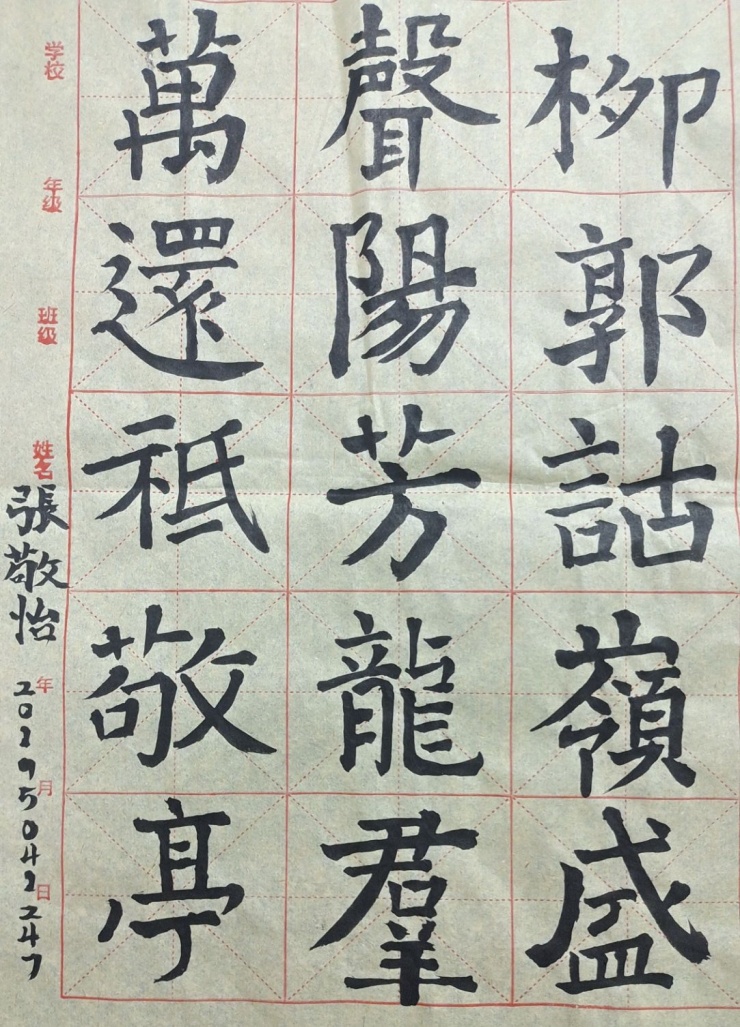 柳郭詁嶺盛
聲陽芳龍羣
萬還祗敬亭
学校
年级
班级
姓名
張敬怡
年
月
日